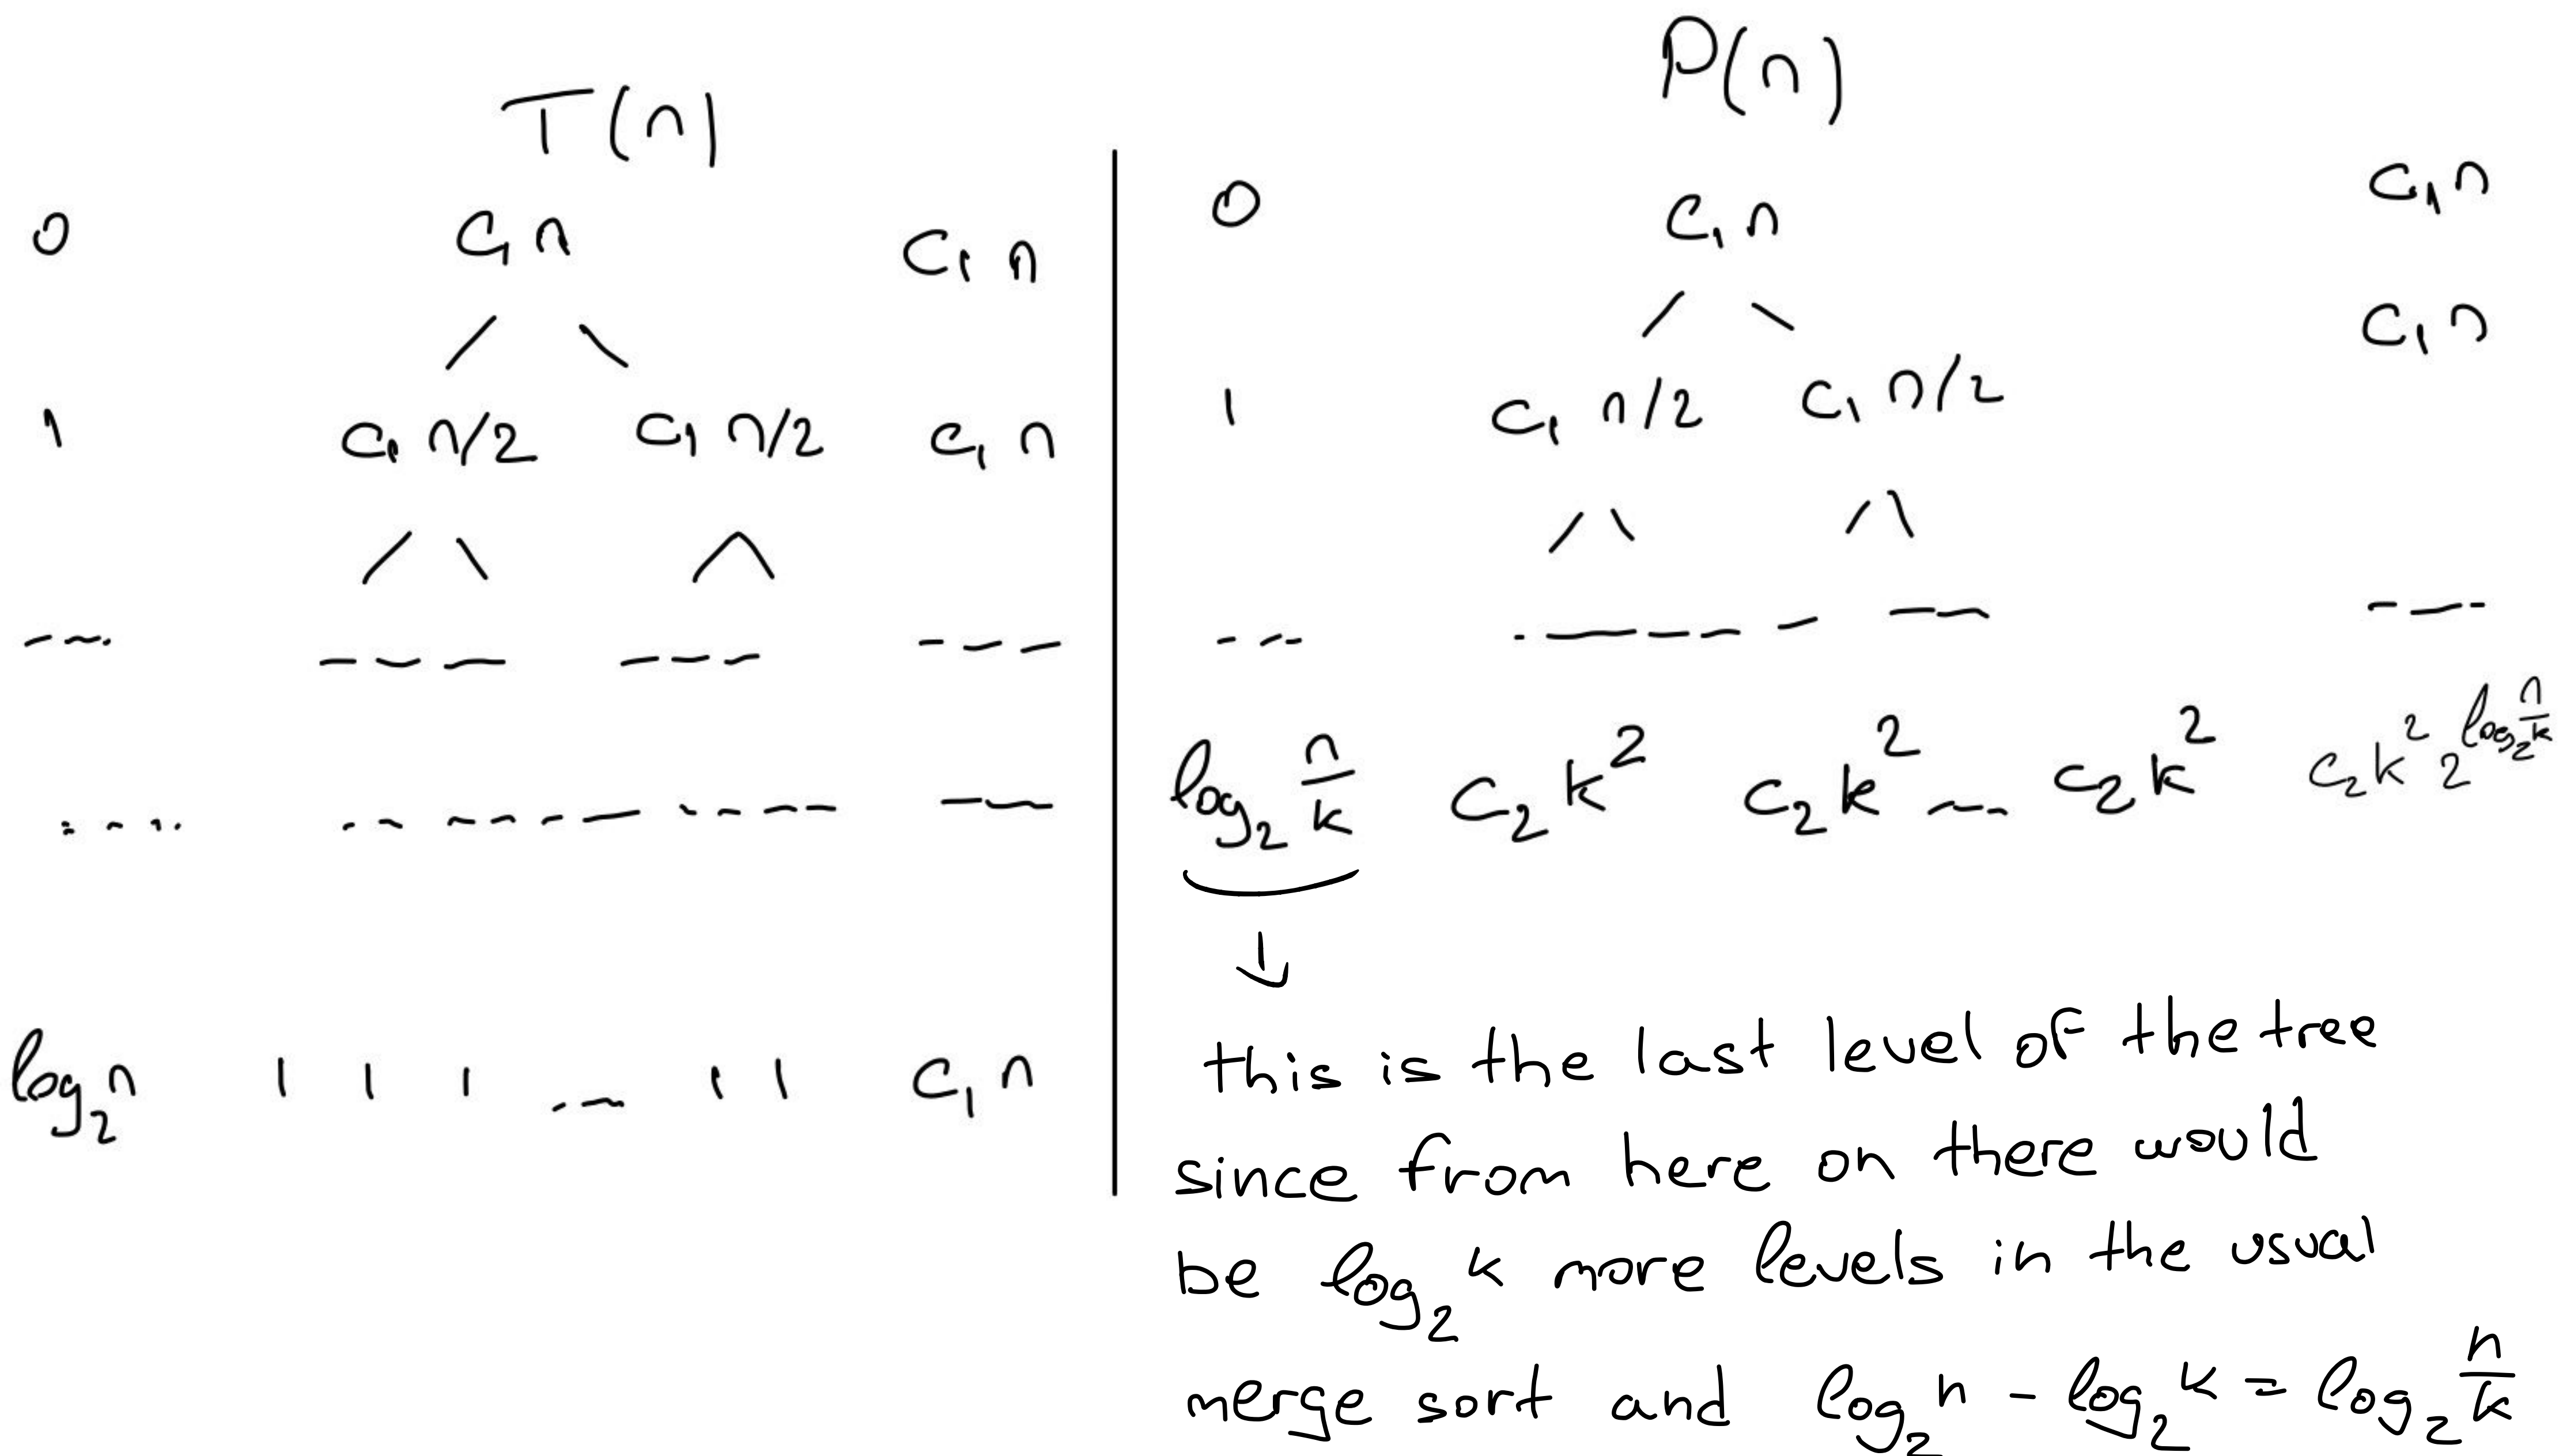 T(n)
0 c₁n c₁n
1 c₁n/2 c₁n/2 c₁n
log₂n 1 1 1 --- 1 1 c₁n
P(n)
0 c₁n c₁n
c₁n
1 c₁n/2 c₁n/2
log₂ n/k c₂k² c₂k² --- c₂k² c₂k² 2^(log₂ n/k)
this is the last level of the tree
since from here on there would
be log₂k more levels in the usual
merge sort and log₂n - log₂k = log₂ n/k